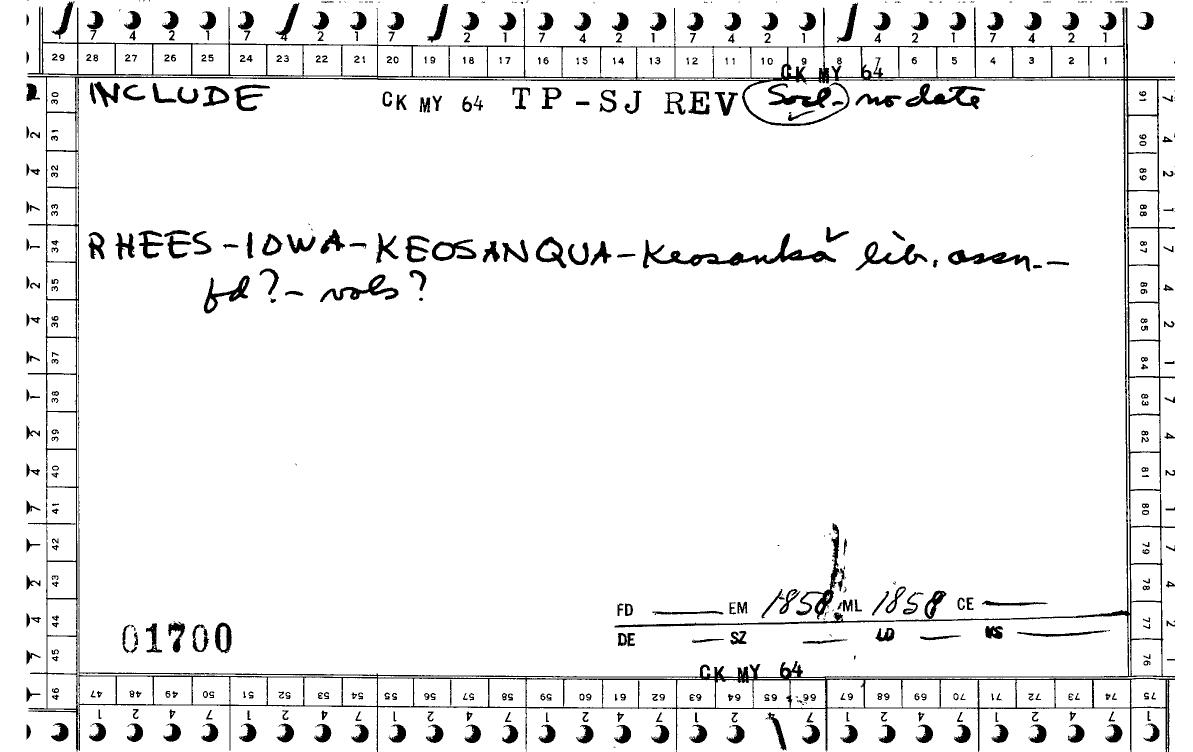 7 4 2 1 7 4 2 1 7 2 1 7 4 2 1 7 4 2 1 7 4 2 1
29 28 27 26 25 24 23 22 21 20 19 18 17 16 15 14 13 12 11 10 9 8 7 6 5 4 3 2 1
CK MY 64
INCLUDE CK MY 64 TP-SJ REV Socl- no date
RHEES-IOWA-KEOSANQUA-Keosanka lib. assn.-
fd?- vols?
FD EM 1858 ML 1858 CE
DE SZ LD KS
01700
CK MY 64
30 31 32 33 34 35 36 37 38 39 40 41 42 43 44 45 46
47 48 49 50 51 52 53 54 55 56 57 58 59 60 61 62 63 64 65 66 67 68 69 70 71 72 73 74 75
76 77 78 79 80 81 82 83 84 85 86 87 88 89 90 91